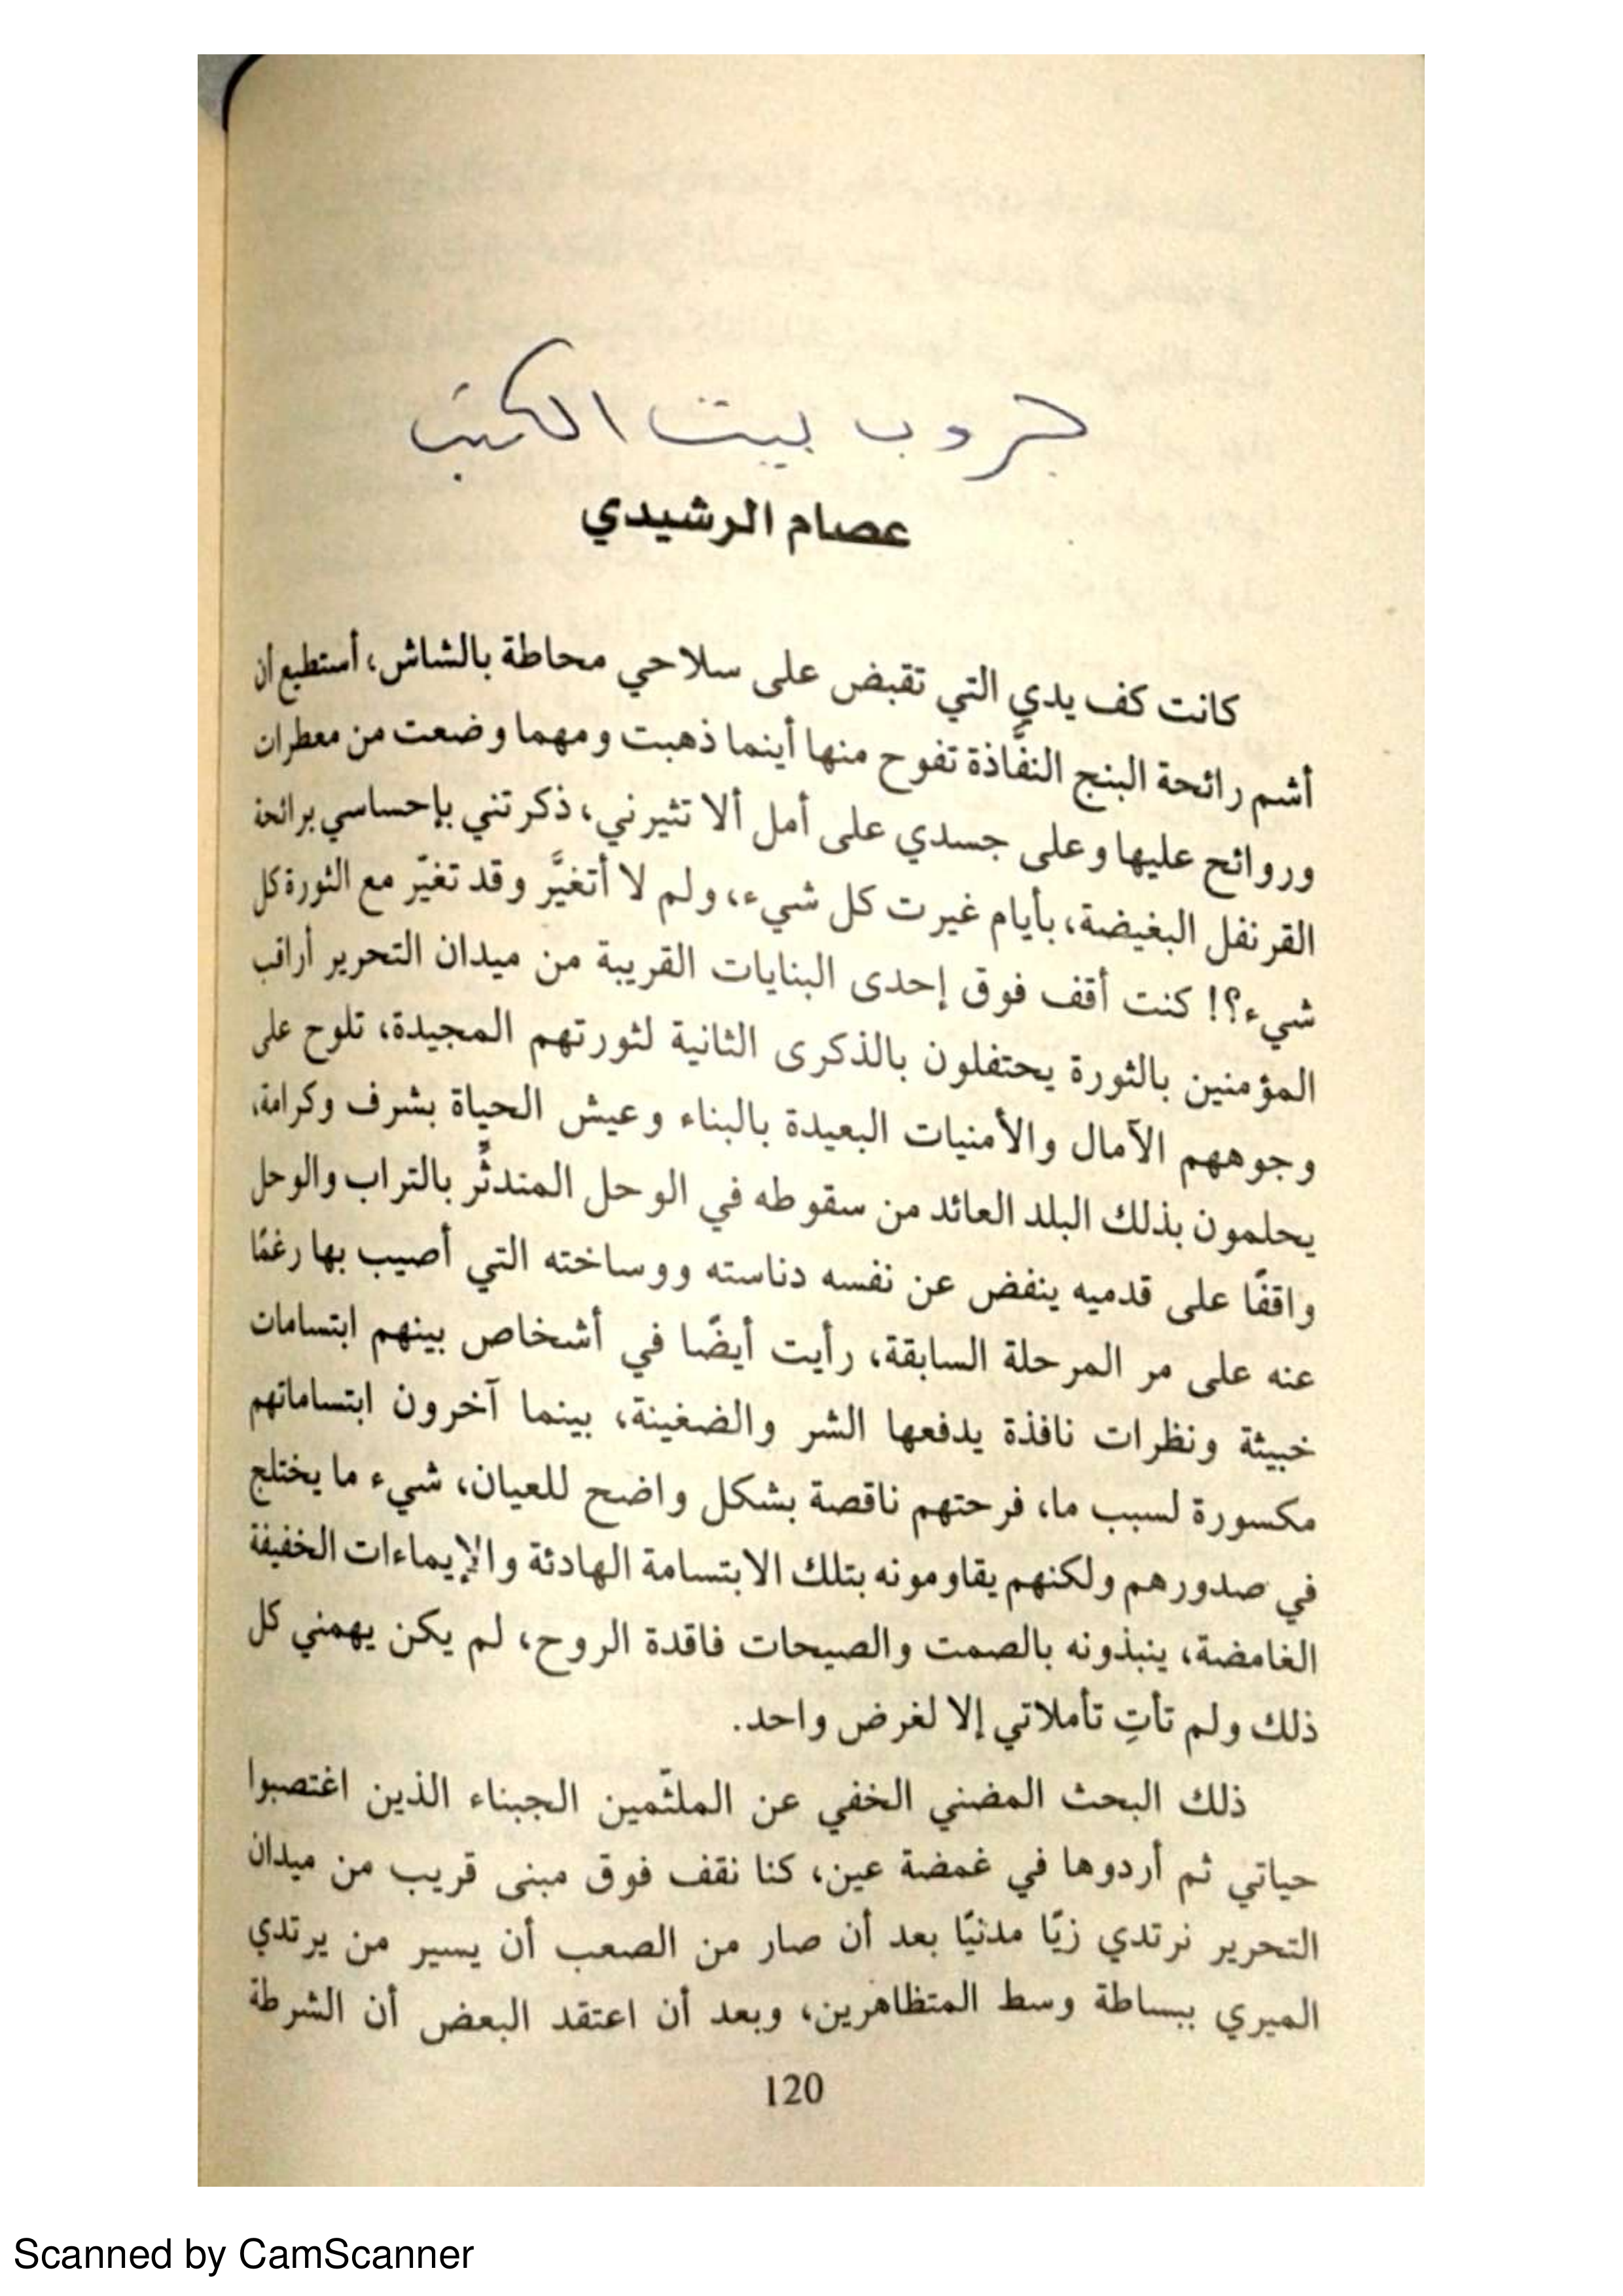 جروب بيت الكتب
عصام الرشيدي
كانت كف يدي التي تقبض على سلاحي محاطة بالشاش، أستطيع أن
أشم رائحة البنج النفَّاذة تفوح منها أينما ذهبت ومهما وضعت من معطرات
وروائح عليها وعلى جسدي على أمل ألا تثيرني، ذكرتني بإحساسي برائحة
القرنفل البغيضة، بأيام غيرت كل شيء، ولم لا أتغيَّر وقد تغيّر مع الثورة كل
شيء؟! كنت أقف فوق إحدى البنايات القريبة من ميدان التحرير أراقب
المؤمنين بالثورة يحتفلون بالذكرى الثانية لثورتهم المجيدة، تلوح على
وجوههم الآمال والأمنيات البعيدة بالبناء وعيش الحياة بشرف وكرامة،
يحلمون بذلك البلد العائد من سقوطه في الوحل المتدثِّر بالتراب والوحل
واقفًا على قدميه ينفض عن نفسه دناسته ووساخته التي أصيب بها رغمًا
عنه على مر المرحلة السابقة، رأيت أيضًا في أشخاص بينهم ابتسامات
خبيثة ونظرات نافذة يدفعها الشر والضغينة، بينما آخرون ابتساماتهم
مكسورة لسبب ما، فرحتهم ناقصة بشكل واضح للعيان، شيء ما يختلج
في صدورهم ولكنهم يقاومونه بتلك الابتسامة الهادئة والإيماءات الخفيفة
الغامضة، ينبذونه بالصمت والصيحات فاقدة الروح، لم يكن يهمني كل
ذلك ولم تأتِ تأملاتي إلا لغرض واحد.
ذلك البحث المضني الخفي عن الملثّمين الجبناء الذين اغتصبوا
حياتي ثم أردوها في غمضة عين، كنا نقف فوق مبنى قريب من ميدان
التحرير نرتدي زيًّا مدنيًّا بعد أن صار من الصعب أن يسير من يرتدي
الميري ببساطة وسط المتظاهرين، وبعد أن اعتقد البعض أن الشرطة
120
Scanned by CamScanner